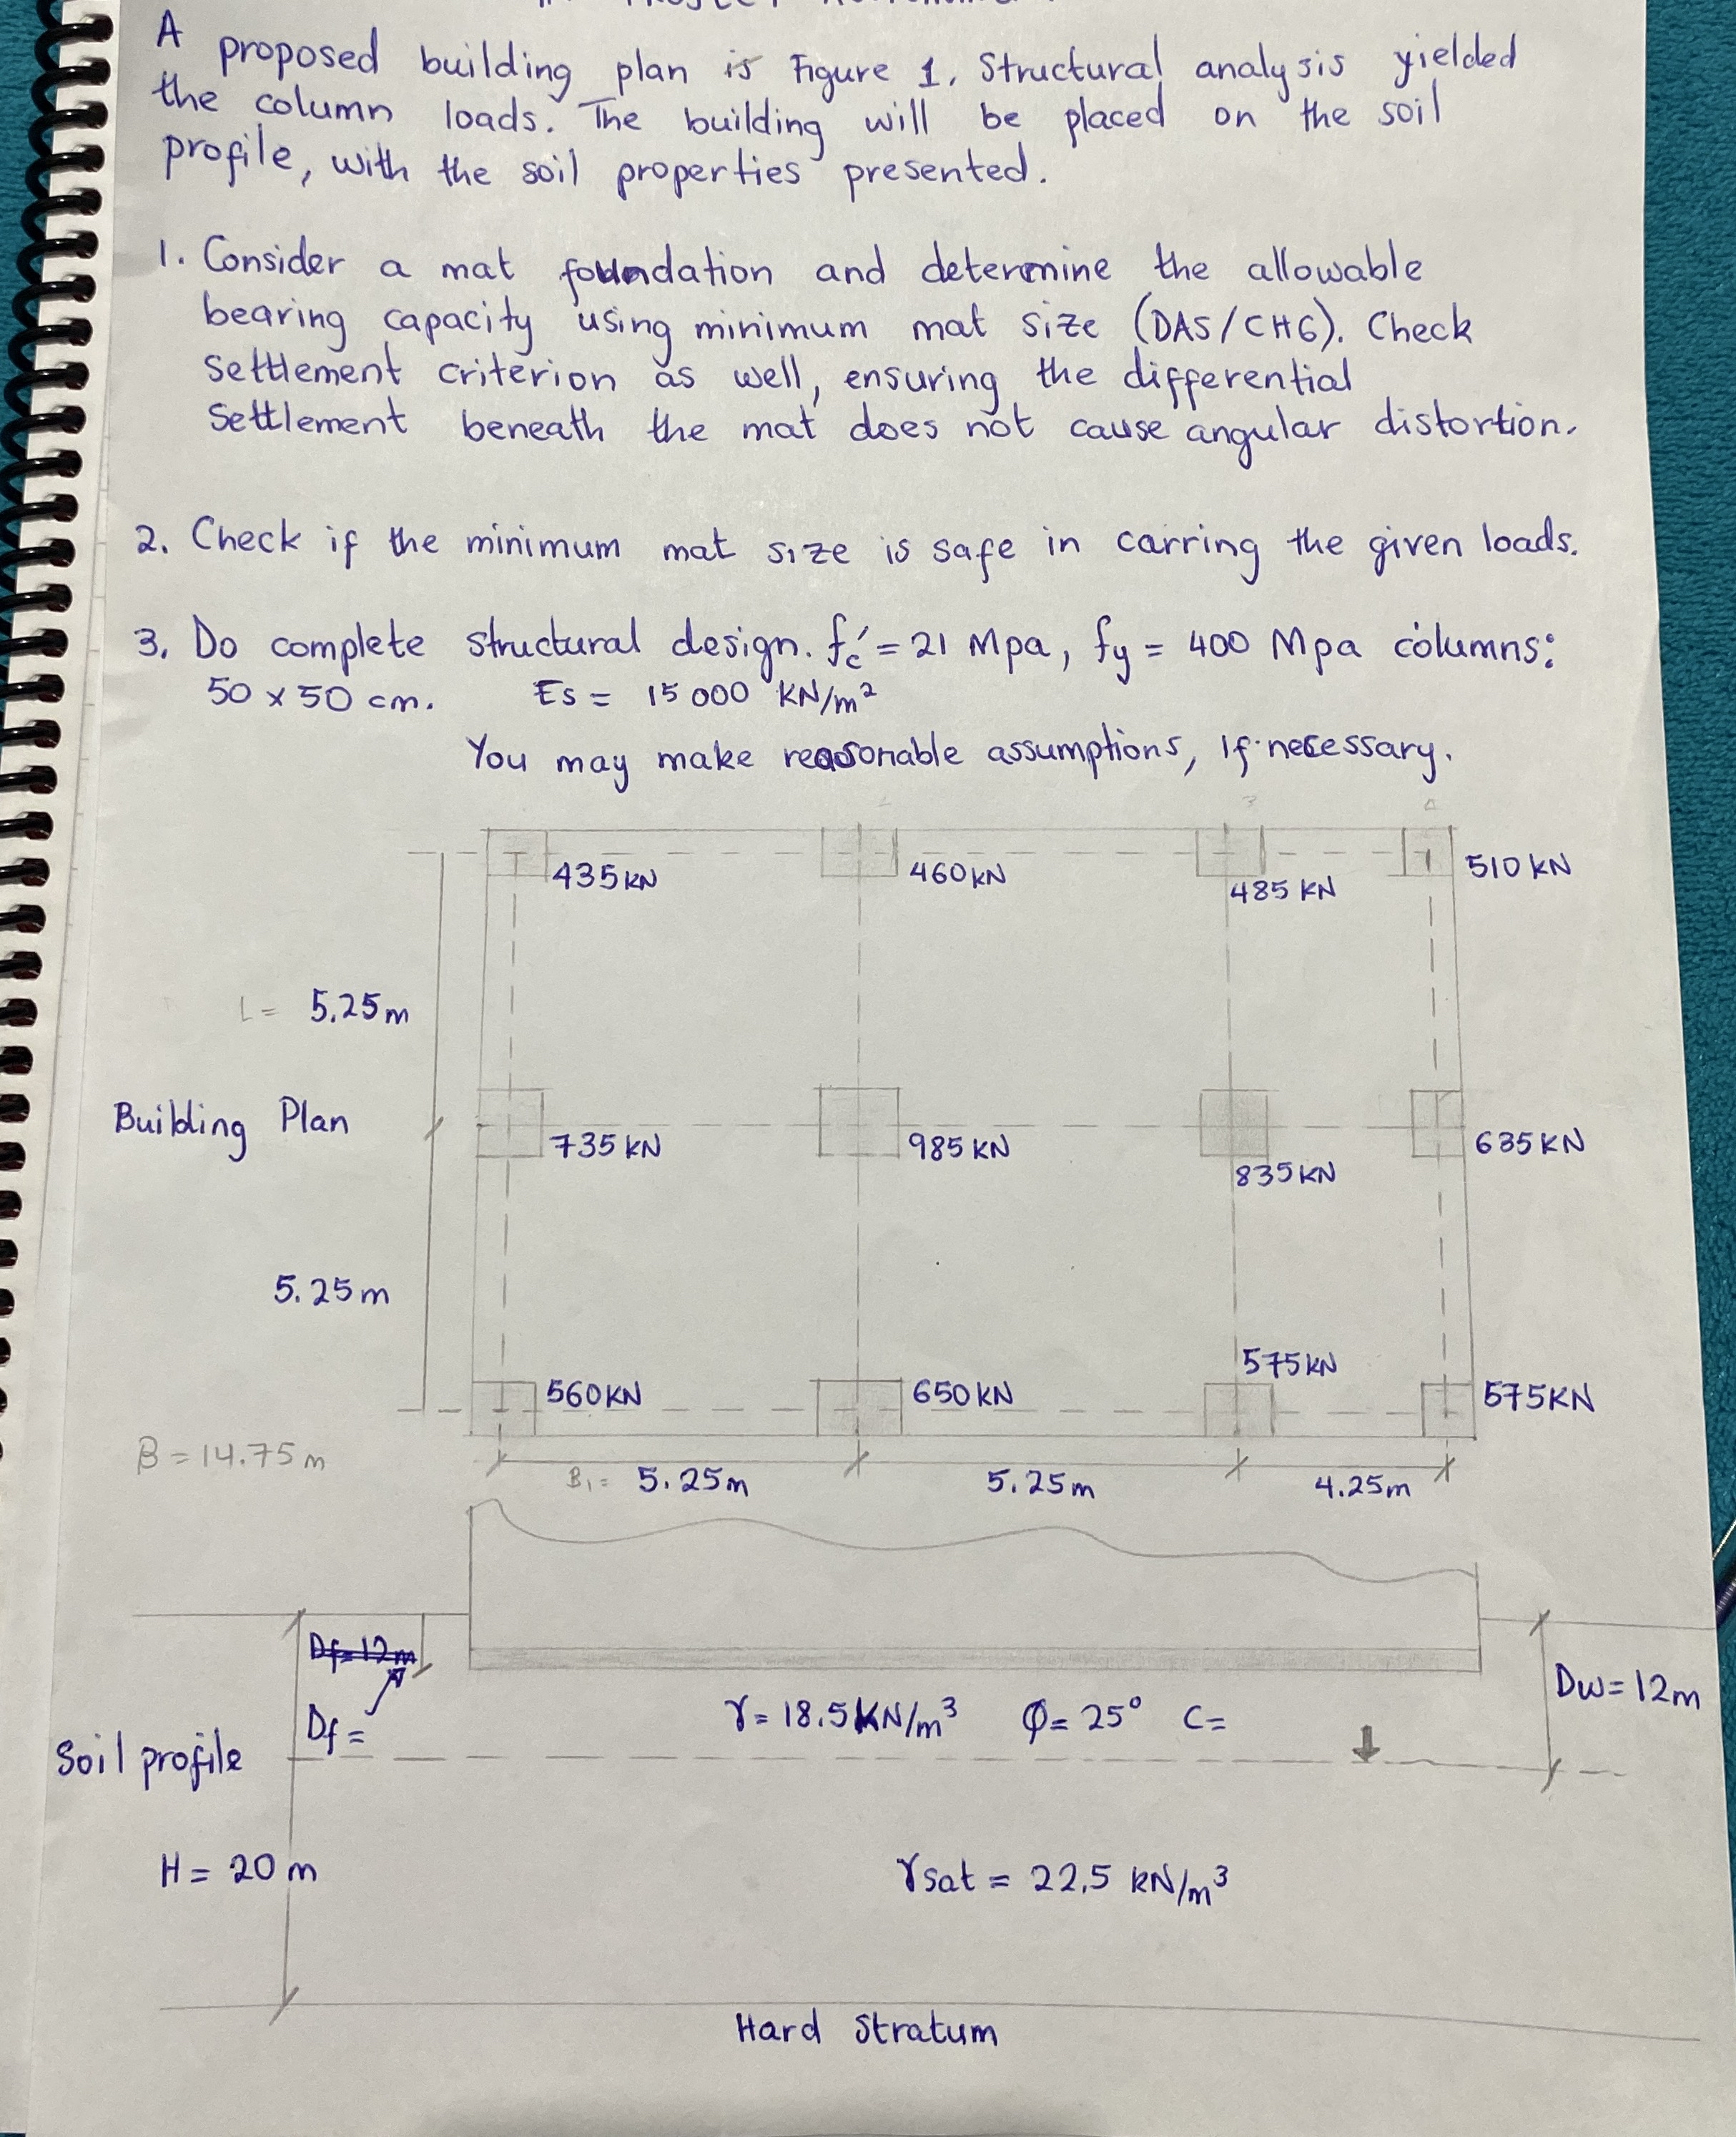 A proposed building plan is Figure 1. Structural analysis yielded
the column loads. The building will be placed on the soil
profile, with the soil properties presented.
1. Consider a mat foundation and determine the allowable
bearing capacity using minimum mat size (DAS/CH6). Check
settlement criterion as well, ensuring the differential
Settlement beneath the mat does not cause angular distortion.
2. Check if the minimum mat size is safe in carring the given loads.
3. Do complete structural design. fc' = 21 Mpa, fy = 400 Mpa columns:
50 x 50 cm. Es = 15 000 KN/m²
You may make reasonable assumptions, If necessary.
435 kN
460 kN
485 KN
510 kN
L = 5.25m
Building Plan
735 kN
985 KN
835 KN
635 KN
5.25m
575 kN
560 KN
650 kN
575KN
B = 14.75 m
B₁ = 5.25m
5.25m
4.25m
Df = 12m
Dw = 12m
Df =
γ = 18.5 KN/m³ Ø = 25° C =
Soil profile
H = 20 m
γsat = 22.5 kN/m³
Hard Stratum